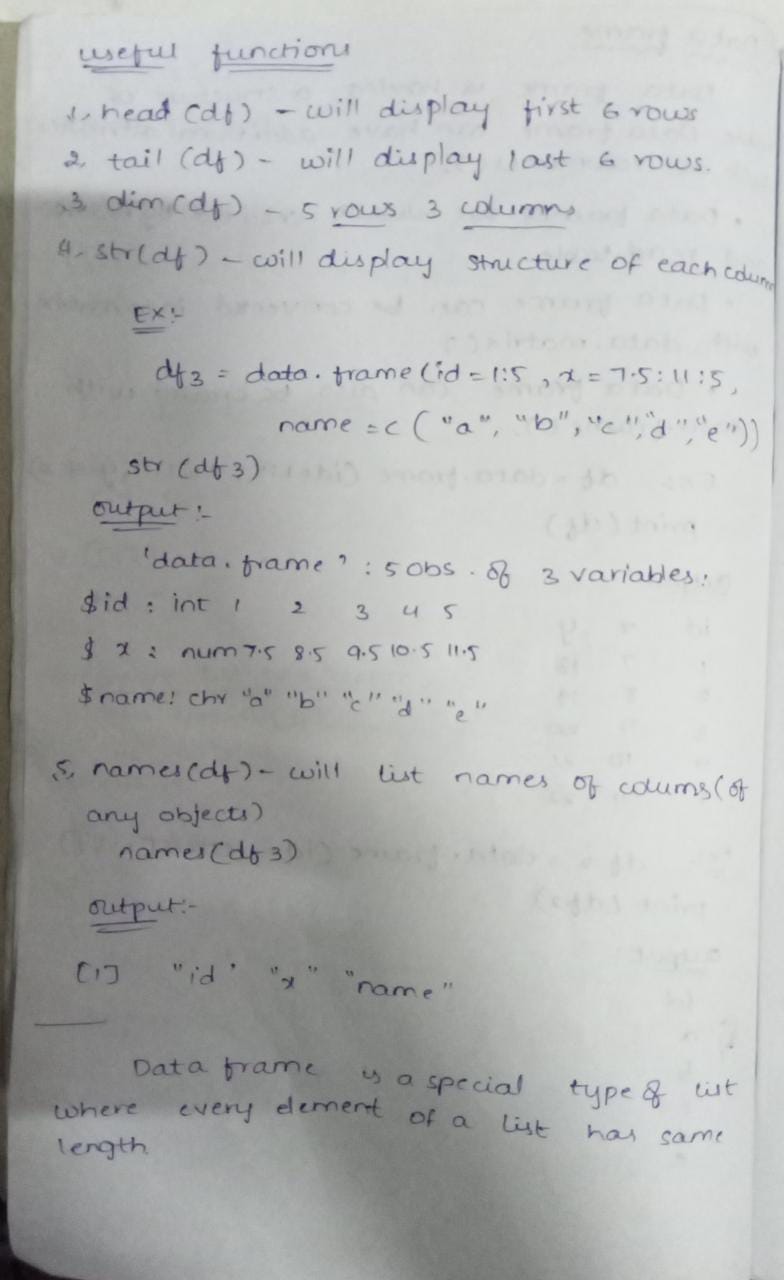 useful functions
1, head (df) - will display first 6 rows
2, tail (df) - will display last 6 rows.
3 dim (df) - 5 rows 3 columns
4. str(df) - will display structure of each column
EX:-
df3 = data.frame (id = 1:5, x = 7.5:11:5,
name = c ("a", "b", "c", "d", "e"))
str (df3)
output :-
'data.frame' : 5 obs. of 3 variables:
$ id : int 1 2 3 4 5
$ x : num 7.5 8.5 9.5 10.5 11.5
$ name: chr "a" "b" "c" "d" "e"
5, names(df) - will list names of colums (of
any objects)
names(df3)
output:-
[1] "id" "x" "name"
Data frame is a special type of list
where every element of a list has same
length